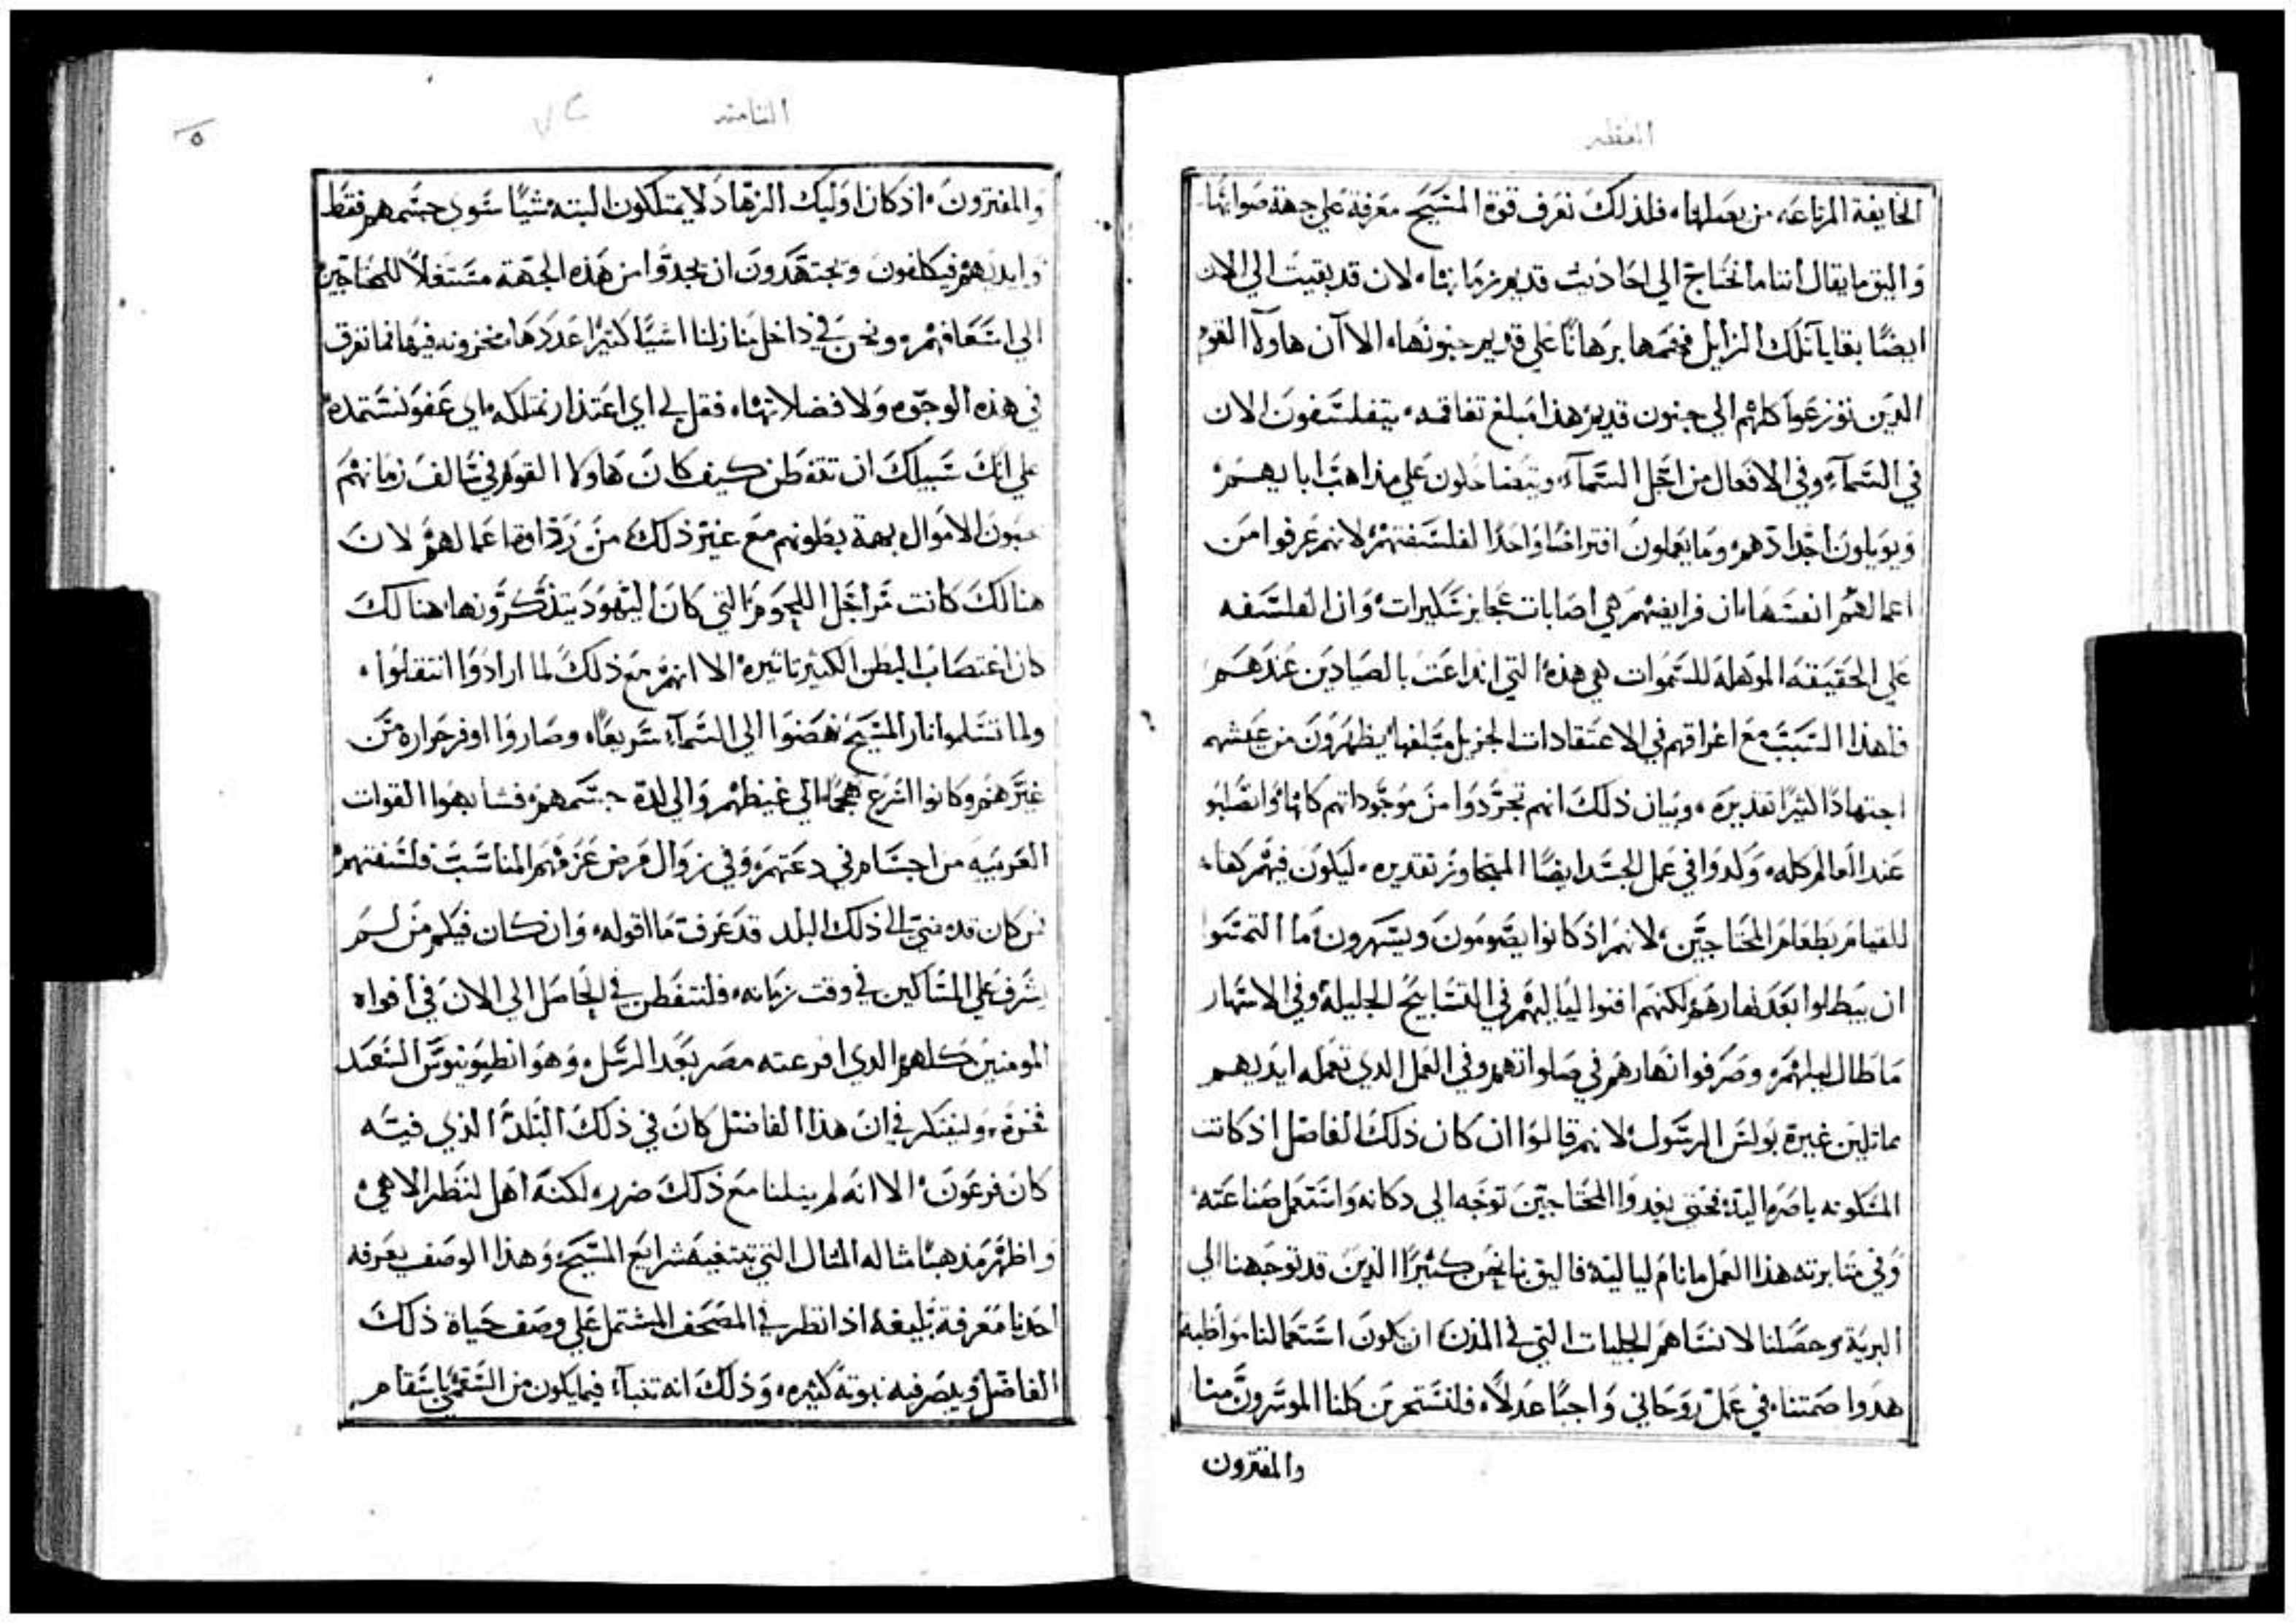 الخايفة المرتاعه من بعملها، فلذلك نعرف قوة المسيح معرفة علي جهة صوابها
واليق ما يقال اننا ما نحتاج الي احاديث قديم زمانها، لان قد بقيت الي الان
ايضًا بقايا تلك الرذايل فمعها برهانًا علي قديم جنونها، الا آن هاولآ القوم
الدين توزعوا كلهم الي جنون قديم هذا مبلغ تفاقمه، يتفلسفون الان
في السمآء وفي الافعال من اجل السمآء، ويتفاضلون علي مذاهب ابايهم
ويويلون اجدادهم، وما يعملون افتراضًا واحدًا لفلسفتهم لانهم عرفوا من
اعمالهم انفسها، ان فرايضهم هي اصابات عجايز سكيرات، وان الفلسفه
علي الحقيقه الموهلة للسموات هي هذه التي انداعت بالصيادين عندهم
فلهذا السبب مع اغراقهم في الاعتقادات الجزيل مبلغها، يظهرون من عيشهم
اجتهادًا كثيرًا تقديره، وبيان ذلك انهم تجردوا من موجوداتهم كلها، وانصلبوا
عند العالم كله، ولدوا في عمل الجسد ايضًا المتجاوز تقديره، ليكون فيهم كفاء
للقيام بطعام المحتاجين، لانهم اذ كانوا يصومون ويسهرون، ما التمسوا
ان يبطلوا بعد نهارهم، لكنهم افنوا لياليهم في التسابيح الجليلة وفي الاسهار
ما طال ليلهم، وصرفوا نهارهم في صلواتهم، وفي العمل الدي تعمله ايديهم
مماثلين غيرة بولس الرسول، لانهم قالوا ان كان ذلك الفاضل اذ كانت
المسكونه باصره اليه، فحتى يغدوا المحتاجين توجه الي دكانه واستعمل صناعته
وفي مثابرته هذا العمل ما نام لياليه، فاليق بنا نحن كثيرًا الذين قد توجهنا الي
البرية، وحصلنا لا نساهم الجلبات التي في المدن، ان يكون استعمالنا مواظبة
هدوا صمتنا، في عمل روحاني واجبًا عدلًا، فلنستحرين كلنا الموسرون منا
والمفترون
الثامنه
والمفترون، اذ كان اوليك الزهاد لا يمتلكون البته شيًا سوي جسمهم فقط
وايديهم فيكلفون ويجتهدون ان يجدوا من هذه الجهة مستغلًا للمحتاجين
الي اسعافهم، ونحن في داخل منازلنا اشيًا كثيرًا عددها مخزونه فيها فما نفرق
في هذه الوجوه ولا فضلاتها، فقل لي اي اعتذار نمتلكه، اي عفو نستمده
علي انك سبيلك ان تتفطن كيف كان هاولا القوم في سالف زمانهم
يحبون الاموال بهمة بطونهم مع غير ذلك من رذاوة اعمالهم، لان
هنالك كانت مراجل اللحوم التي كان اليهود يتذكرونها، هنالك
كان اغتصاب البطن الكثير تاتيره، الا انهم مع ذلك لما ارادوا انتقلوا،
ولما تسلموا نار المسيح نهضوا الي السمآء سريعًا، وصاروا اوفر حراره من
غيرهم، وكانوا اشرع هجمًا الي غيظهم، والي لدة جسمهم، فشابهوا القوات
الغريبة من اجسام في دعتهم، وفي زوال مرض عزمهم المناسب فلسفتهم
فمن كان قد مضي الي ذلك البلد قد عرف ما اقوله، وان كان فيكم من لم
يشرف علي المساكين في وقت زمانه، فلنتفطن في الحاصل الي الان في افواه
المومنين كلهم الدي افرعته مصر بعد الرسل، وهو انطونيوس السعيد
فخره، وليفتكر في ان هذا الفاضل كان في ذلك البلد الذي فيه
كان فرعون، الا انه لم ينلنا مع ذلك ضرر، لكنه اهل لنظر الاهي
واظهر مذهبًا مثاله المثال التي تبتغيه شرايع المسيح، وهذا الوصف يعرفه
احدنا معرفة بليغه اذا نظر في المصحف المشتمل علي وصف حياة ذلك
الفاضل، ويبصر فيه نبوته كثيره، وذلك انه تنبآء فيما يكون من السقمي باسقام